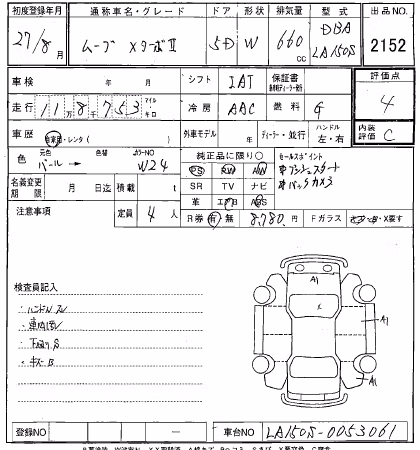 初度登録年月 通称車名・グレード ドア 形状 排気量 型式 出品NO.
27/8月 ムーブ XターボⅡ 5D W 660cc DBA LA150S 2152
車検 年 月 シフト IAT 保証書 評価点
走行 11万8千753 マイル キロ 冷房 AAC 燃料 G 4
車歴 自家用・レンタ( ) 外車モデル 年 ディーラー・並行 ハンドル 左・右 内装評価 C
色 元色 パール→ 色替 カラーNO W24
純正品に限り○ セールスポイント
PS PW AW プッシュスタート
SR TV ナビ バックカメラ
革 エアB ABS
名義変更期限 月 日迄 積載 t
注意事項 定員 4人 R券 有・無 8,780円 Fガラス
検査員記入
下廻りS
キズB
A1
A1
A1
登録NO ― 車台NO LA150S-0053061